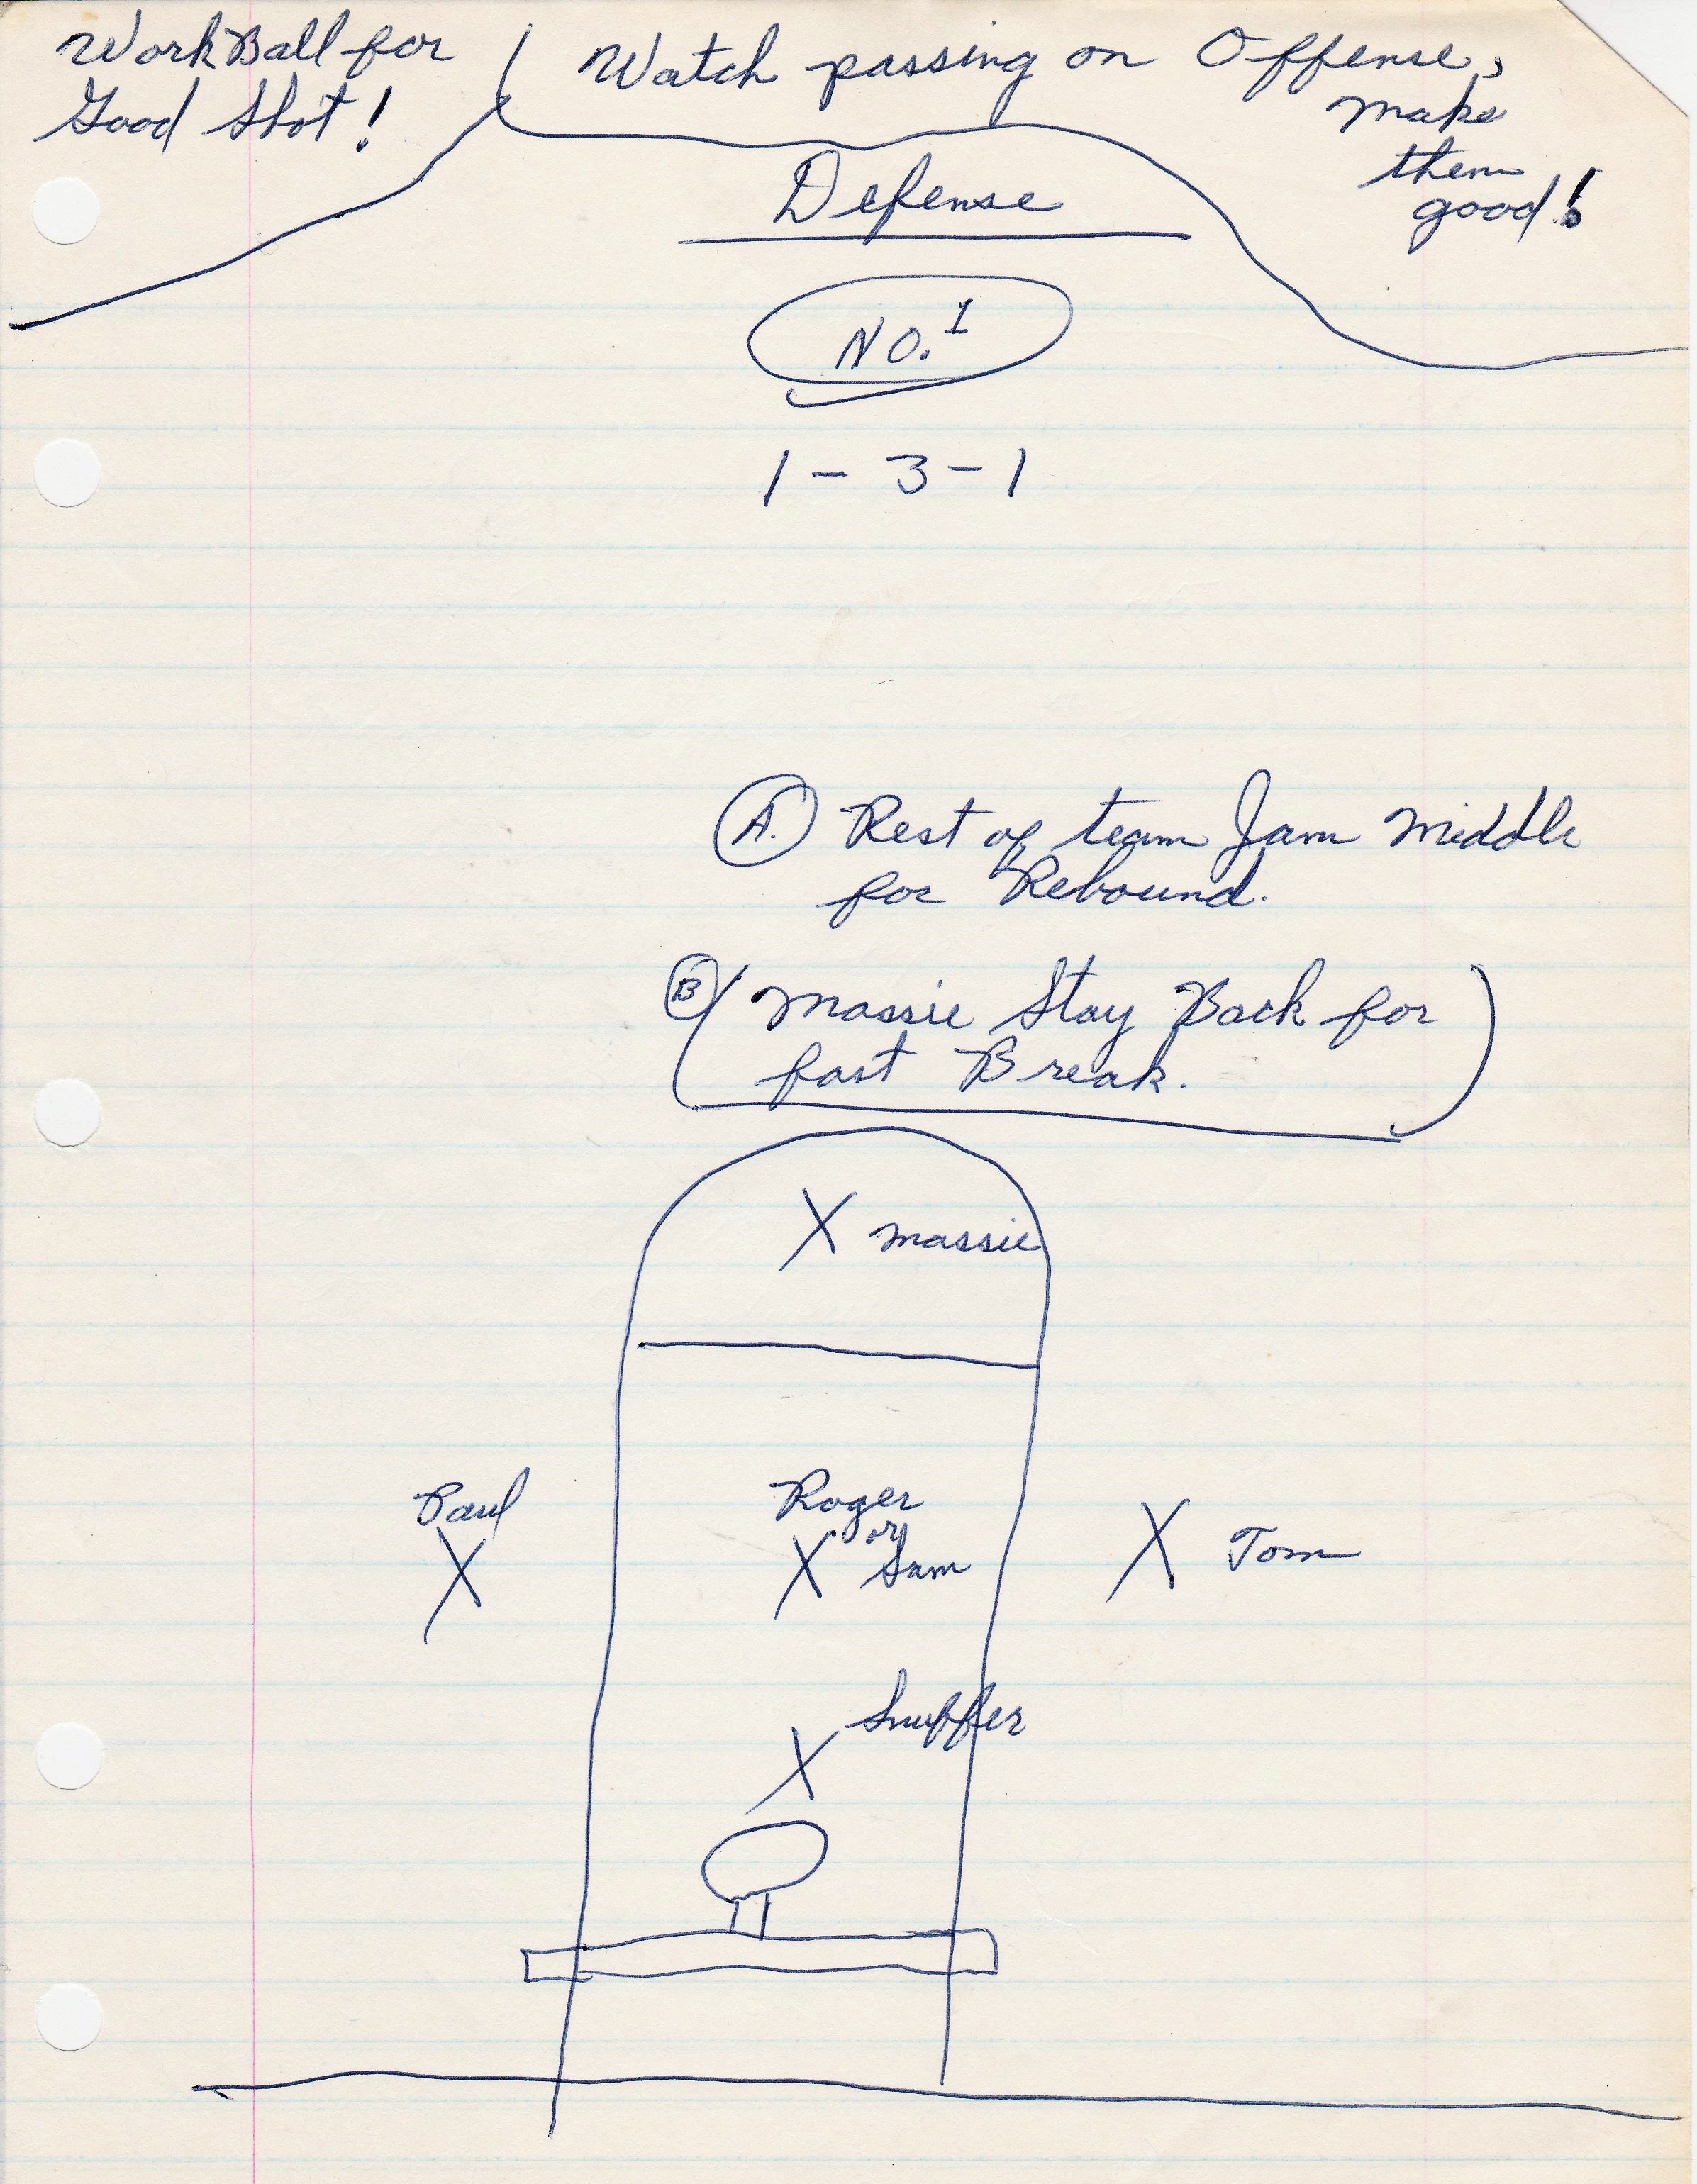 Work Ball for
Good Shot!
Watch passing on Offense,
make
them
good!
Defense
NO. 1
1 - 3 - 1
A. Rest of team Jam Middle
for Rebound.
B Massie Stay Back for
fast Break.
X Massie
Paul
X
Roger
or
X Sam
X Tom
Snuffer
X